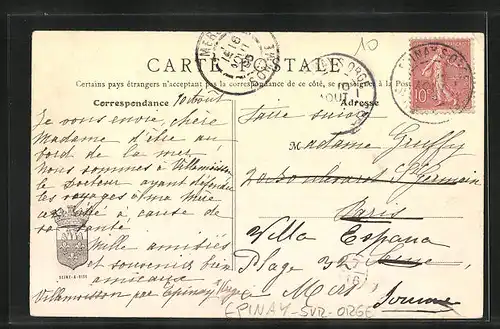 10
CARTE POSTALE
Certains pays étrangers n'acceptant pas la correspondance de ce côté, se renseigner à la Poste
Correspondance
10 Août
Adresse
Je vous envie, chère
Madame d'être au
bord de la mer
Nous sommes à Villemoisson
le Docteur ayant défendu
les voyages à ma Mère
à cause de
sa santé
Mille amitiés
et souvenirs bien
amicaux
Villemoisson par Epinay s/ Orge
SEINE-&-OISE
Faire suivre
M adame Gruffy
20 boulevard St Germain
Paris
Villa Espana
Plage
à Mers
Somme
EPINAY-SUR-ORGE